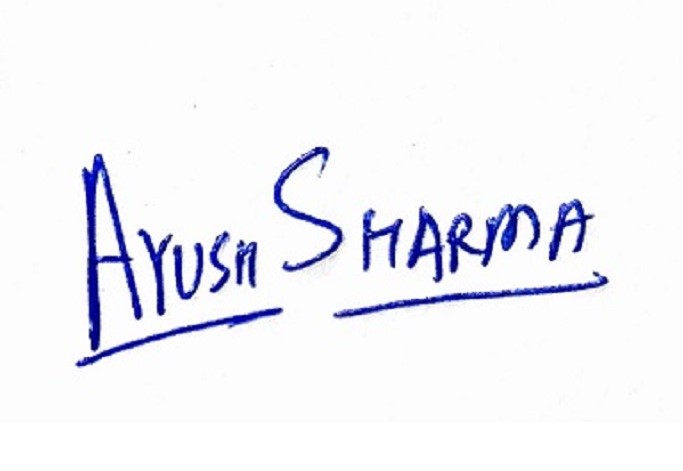 AYUSH SHARMA